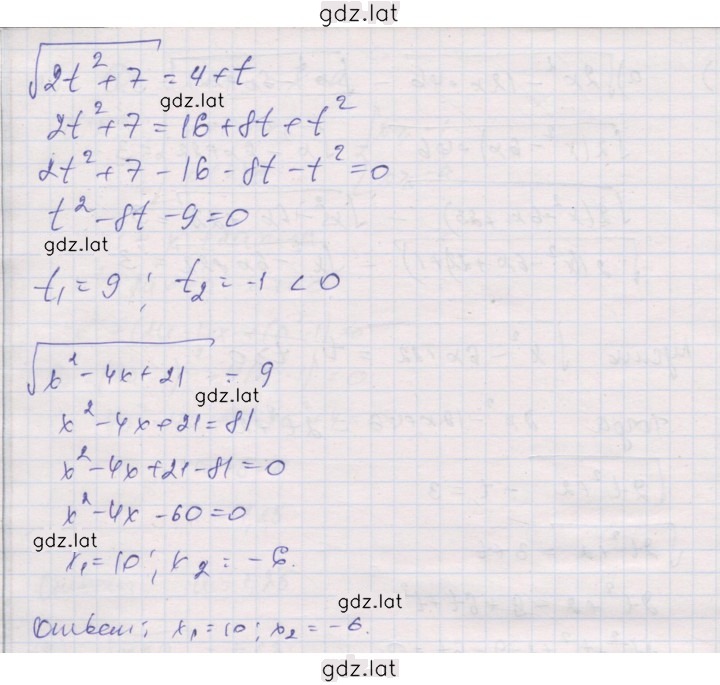 gdz.lat
√(2t² + 7) = 4 + t
gdz.lat
2t² + 7 = 16 + 8t + t²
2t² + 7 - 16 - 8t - t² = 0
t² - 8t - 9 = 0
gdz.lat
t₁ = 9 ; t₂ = -1 < 0
√(x² - 4x + 21) = 9
gdz.lat
x² - 4x + 21 = 81
x² - 4x + 21 - 81 = 0
x² - 4x - 60 = 0
gdz.lat
x₁ = 10 ; x₂ = -6.
gdz.lat
Ответ: x₁ = 10 ; x₂ = -6.
gdz.lat